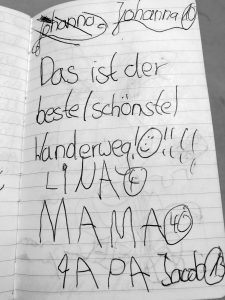 Johanna Johanna 10
Das ist der
beste/schönste
Wanderweg!☺!!!!
LINA
MAMA 40
PAPA Jacob 13